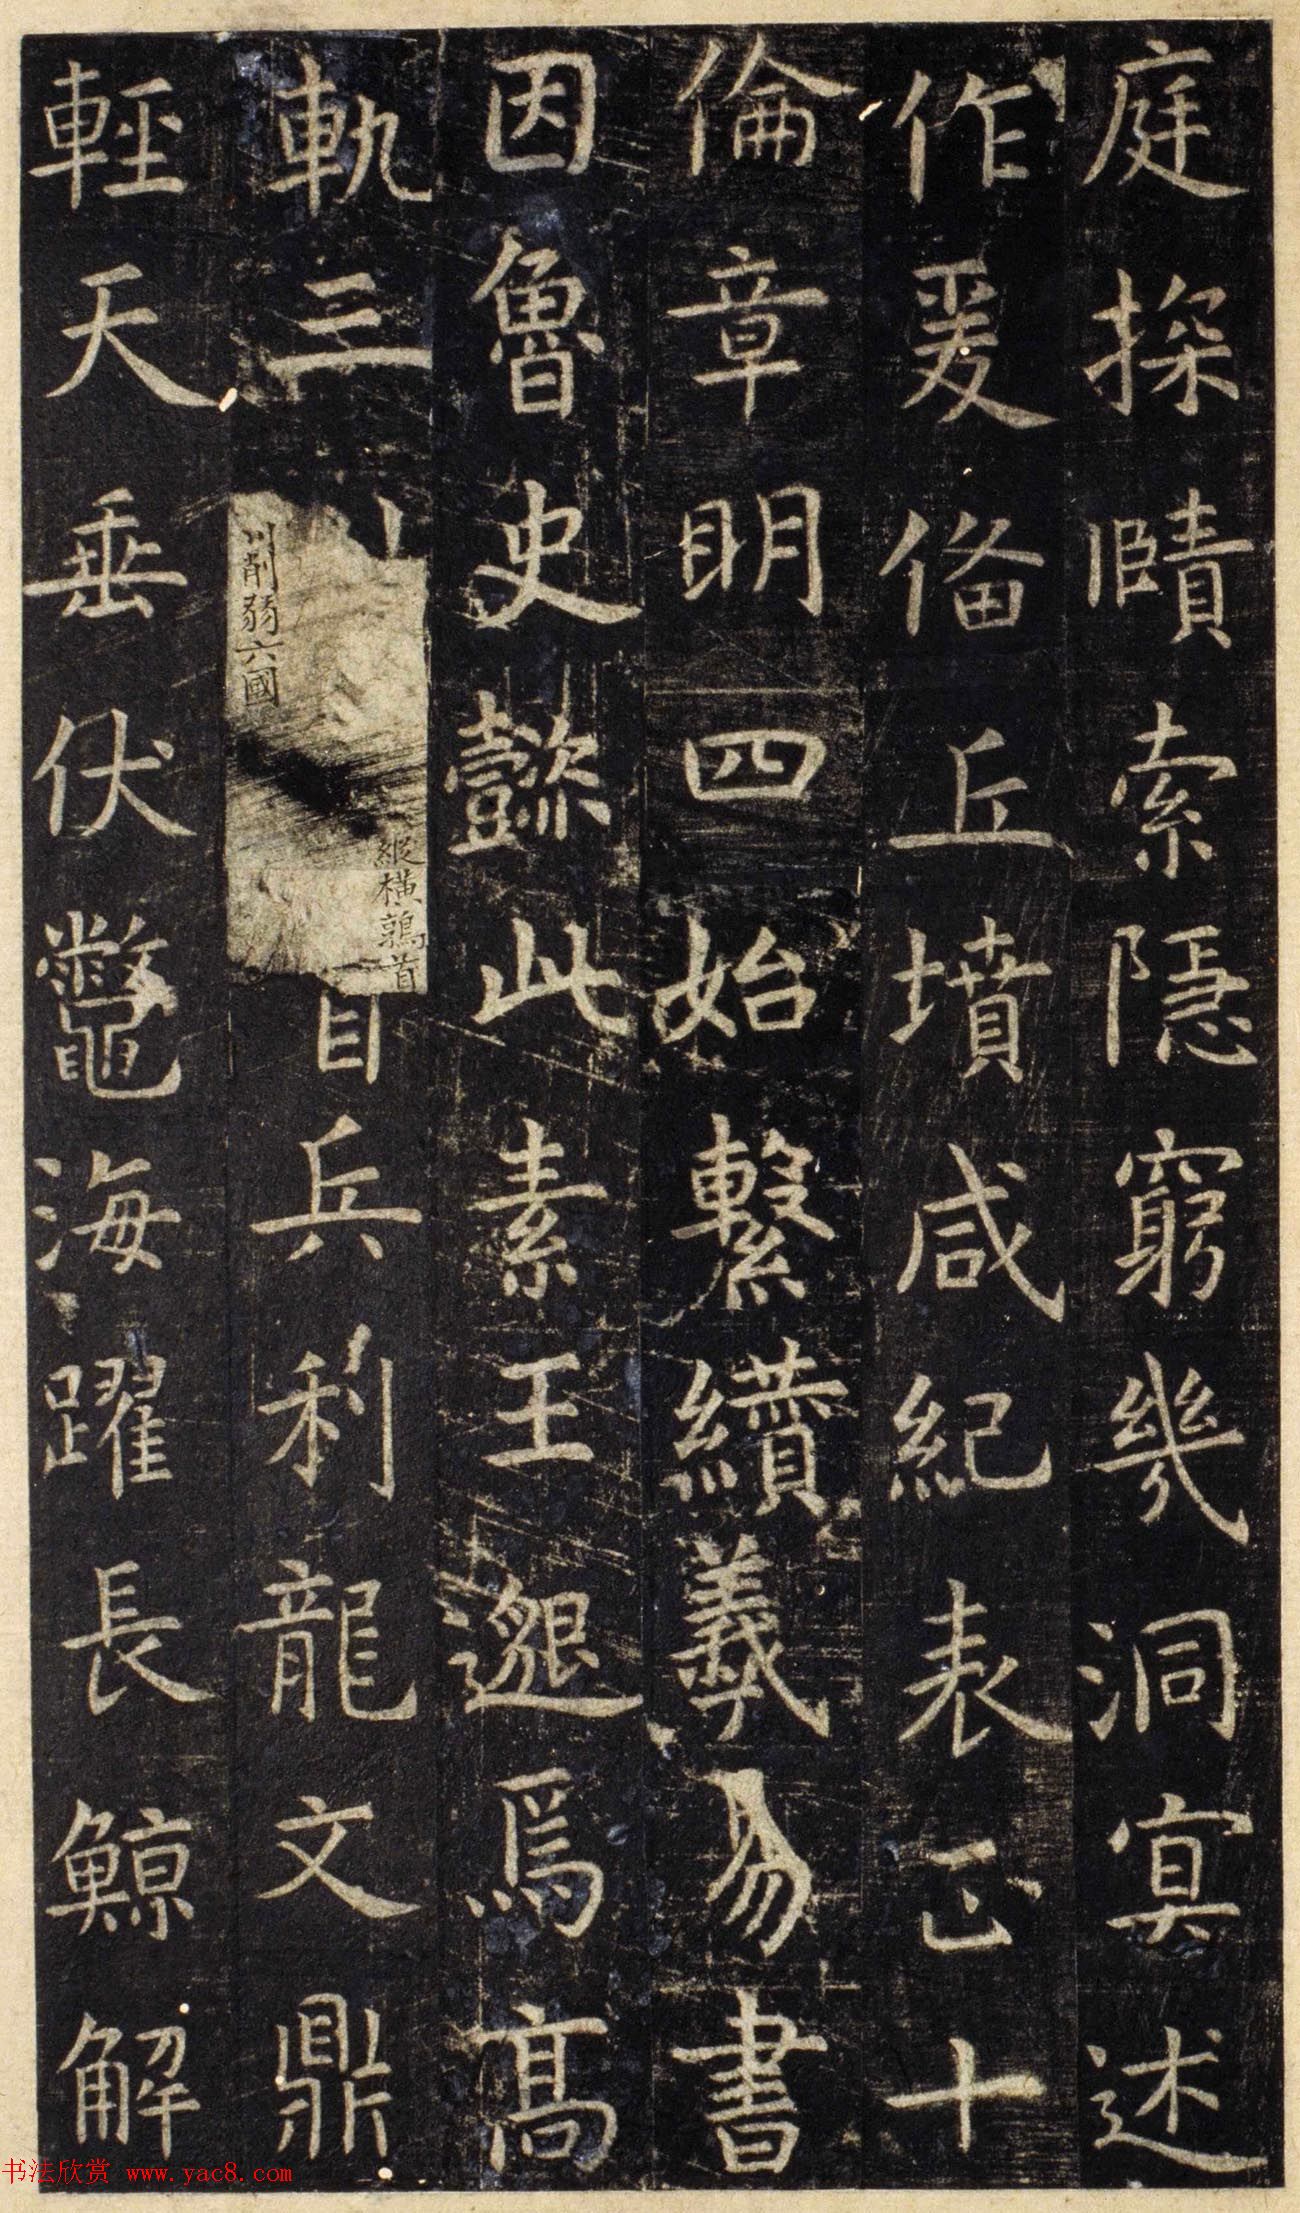 庭探賾索隱窮幾洞冥述
作爰俻丘墳咸紀表正十
倫章明四始繫纘羲易書
因魯史懿此素王邈焉高
軌三川
縱橫鶉首
川削弱六國
首兵利龍文鼎
輕天垂伏鼈海躍長鯨解
书法欣赏 www.yac8.com